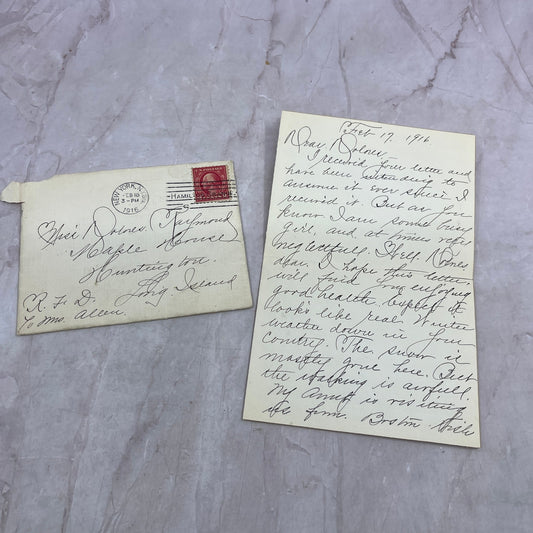 NEW YORK, N.Y.
FEB 18
3-PM
1916
HAMIL
Miss Dolores Raymond
Maple House
Huntington
Long Island
R. F. D.
To Mrs. Allen.
Feb 17, 1916
Dear Dolores,
I received your letter and
have been intending to
answer it ever since I
received it. But as you
know I am some busy
girl, and at times very
neglectfull. Well Dolores
dear I hope this letter
will find you enjoying
good health. expect it
looks like real Winter
weather down in your
Contrey. The snow is
mostly gone here. But
the walking is awfull.
My Aunt is visiting
us from Boston